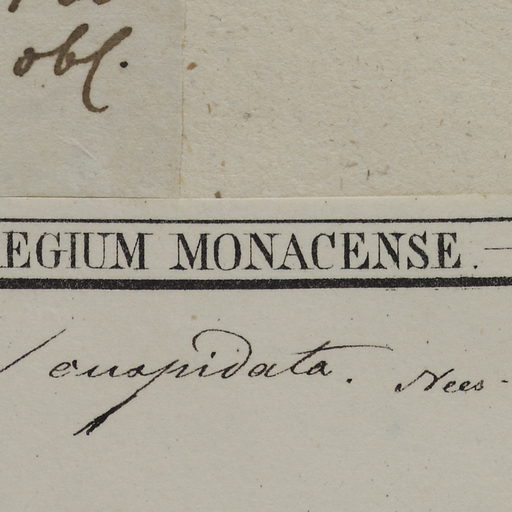 obl.
EGIUM MONACENSE.
cuspidata. Nees